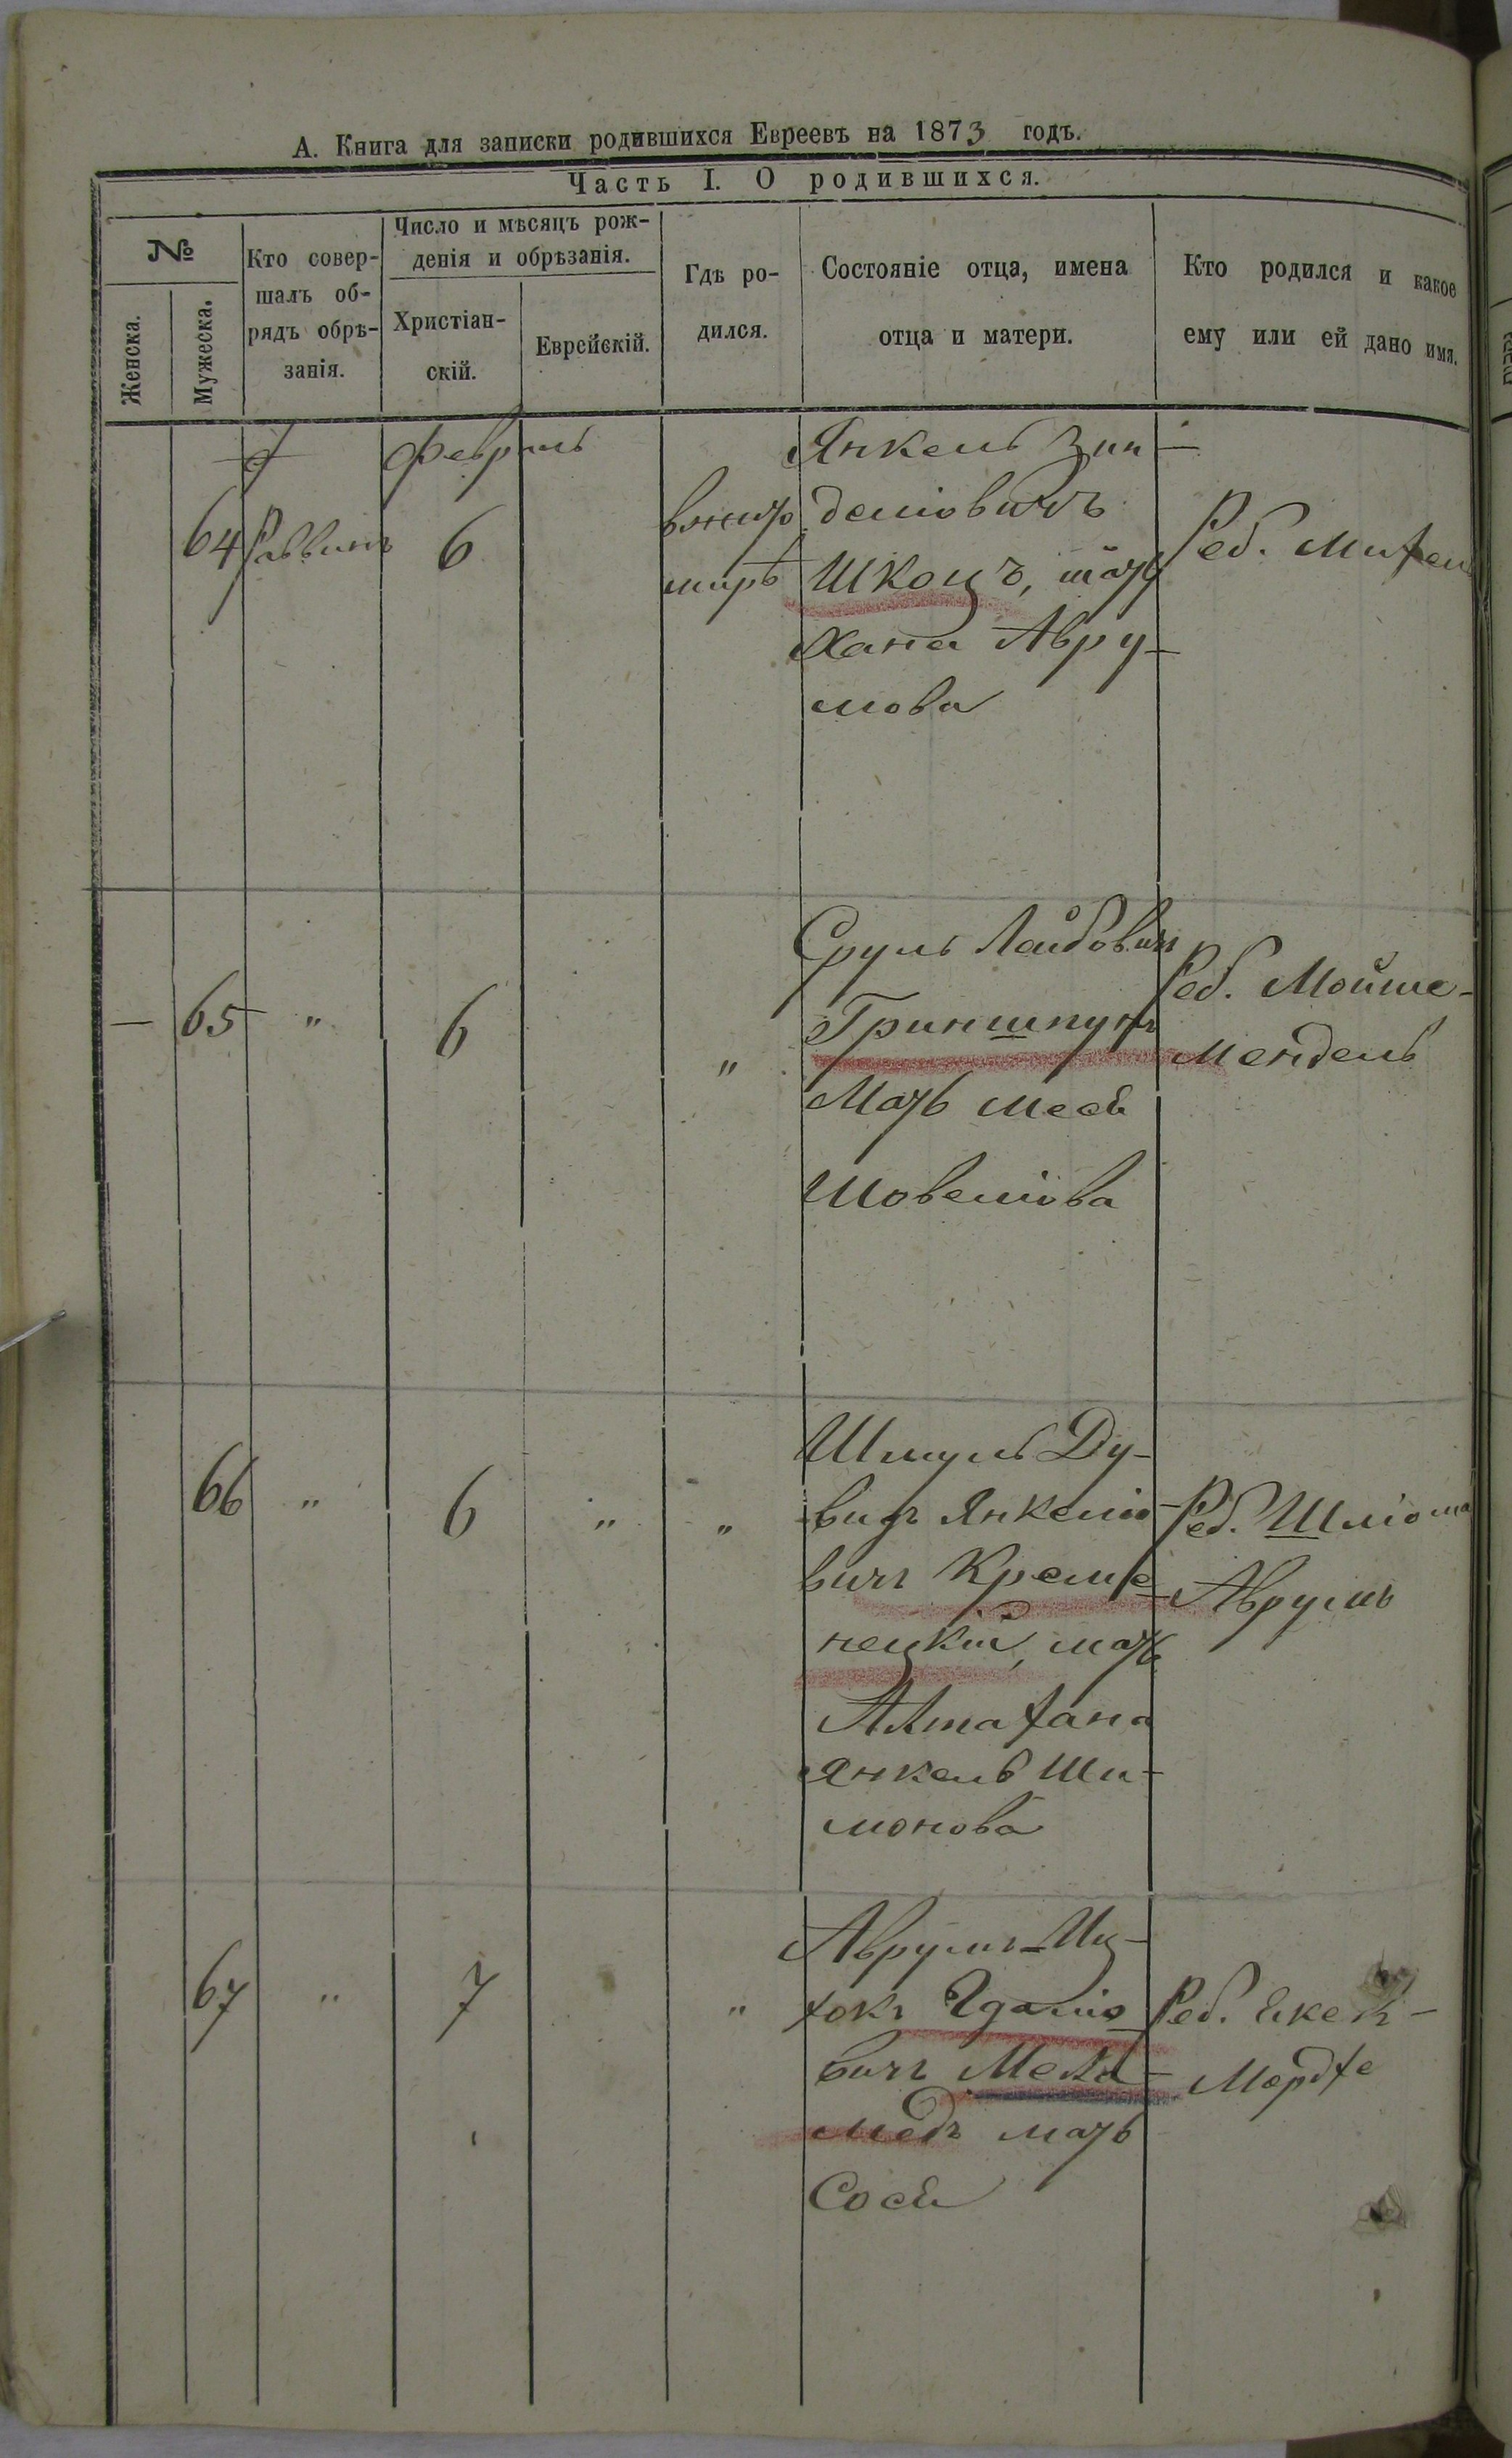 А. Книга для записки родившихся Евреевъ на 1873 годъ.
Часть I. О родившихся.
№
Женска.
Мужеска.
Кто совер-
шалъ об-
рядъ обрѣ-
занія.
Число и мѣсяцъ рож-
денія и обрѣзанія.
Христіан-
скій.
Еврейскій.
Гдѣ ро-
дился.
Состояніе отца, имена
отца и матери.
Кто родился и какое
ему или ей дано имя.
Февраль
64
Раввинъ
6
вжито
мирѣ
Янкель Зин
деліовичъ
Шкоцъ, мать
Хана Авру-
мова
Реб. Михель
65
"
6
"
Сруль Лейбович
Гриншпунъ
Мать
Шовеліова
Реб. Мойше-
Мендель
66
"
6
"
"
Шмуль Ду-
видъ Янкеліо
вичъ Креме
нецкій, мать
Алта Хана
Янкель Ши-
монова
Реб. Шліома
Аврумъ
67
"
7
"
Аврумъ-Иц-
хокъ Гдаліо
вичъ Мела-
медъ мать
Сося
Реб.
Мордхе